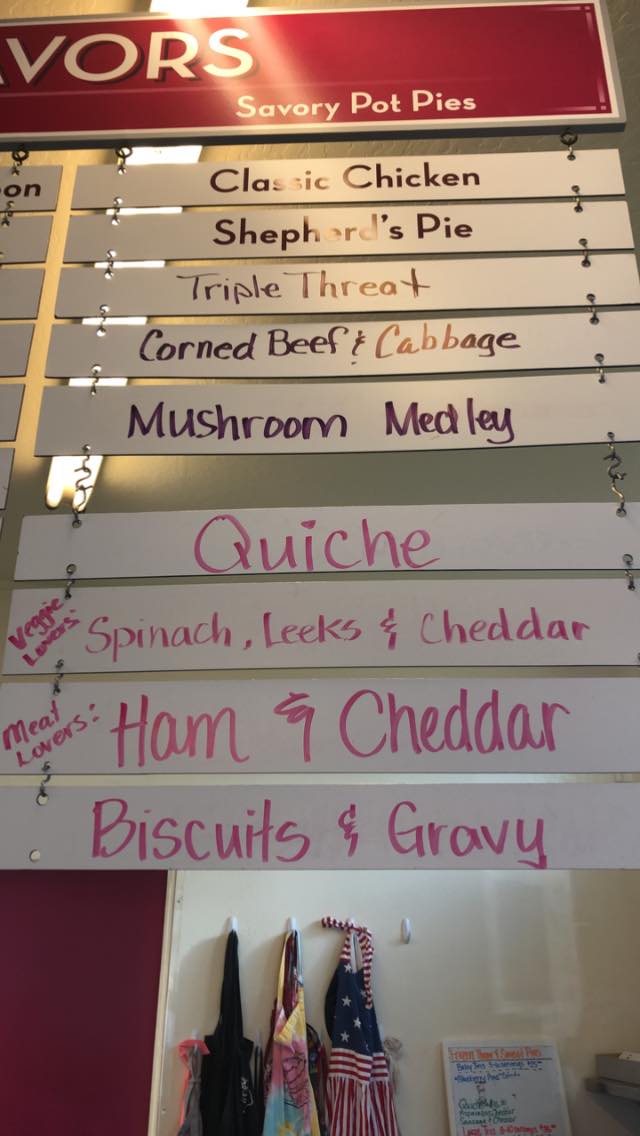 AVORS
Savory Pot Pies
oon
Classic Chicken
Shepherd's Pie
Triple Threat
Corned Beef & Cabbage
Mushroom Medley
Quiche
Veggie Lovers: Spinach, Leeks & Cheddar
Meat Lovers: Ham & Cheddar
Biscuits & Gravy